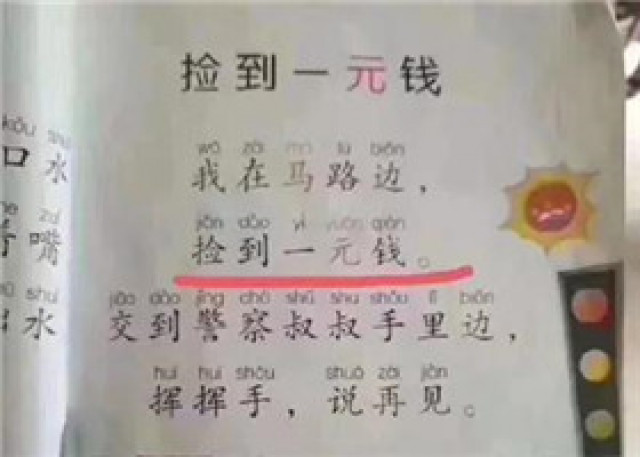 捡到一元钱
wǒ zài mǎ lù biān
我在马路边，
jiǎn dào yì yuán qián
捡到一元钱。
jiāo dào jǐng chá shū shu shǒu lǐ biān
交到警察叔叔手里边，
huī huī shǒu shuō zài jiàn
挥挥手，说再见。
kǒu shuǐ
口水
zuǐ
嘴
shuǐ
水